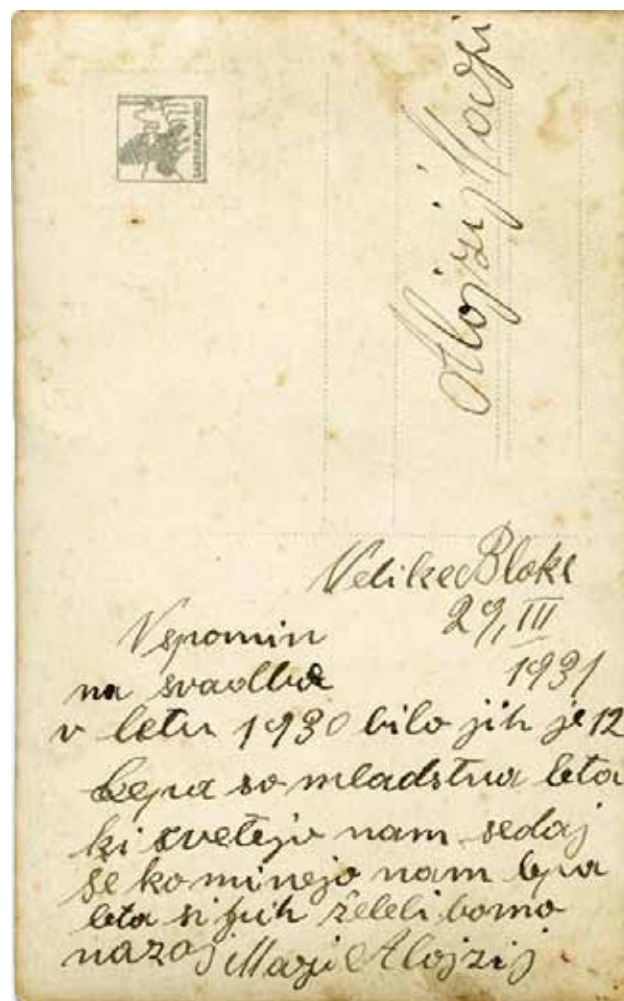 Alojzij
Velike Bloke
29, III
1931
Vspomin
na
v letu 1930 bilo jih je 12
Lepa so mladstna leta
ki cvetejo nam sedaj
še ko minejo nam lpa
leta si jih želeli bomo
nazaj Mazi Alojzij